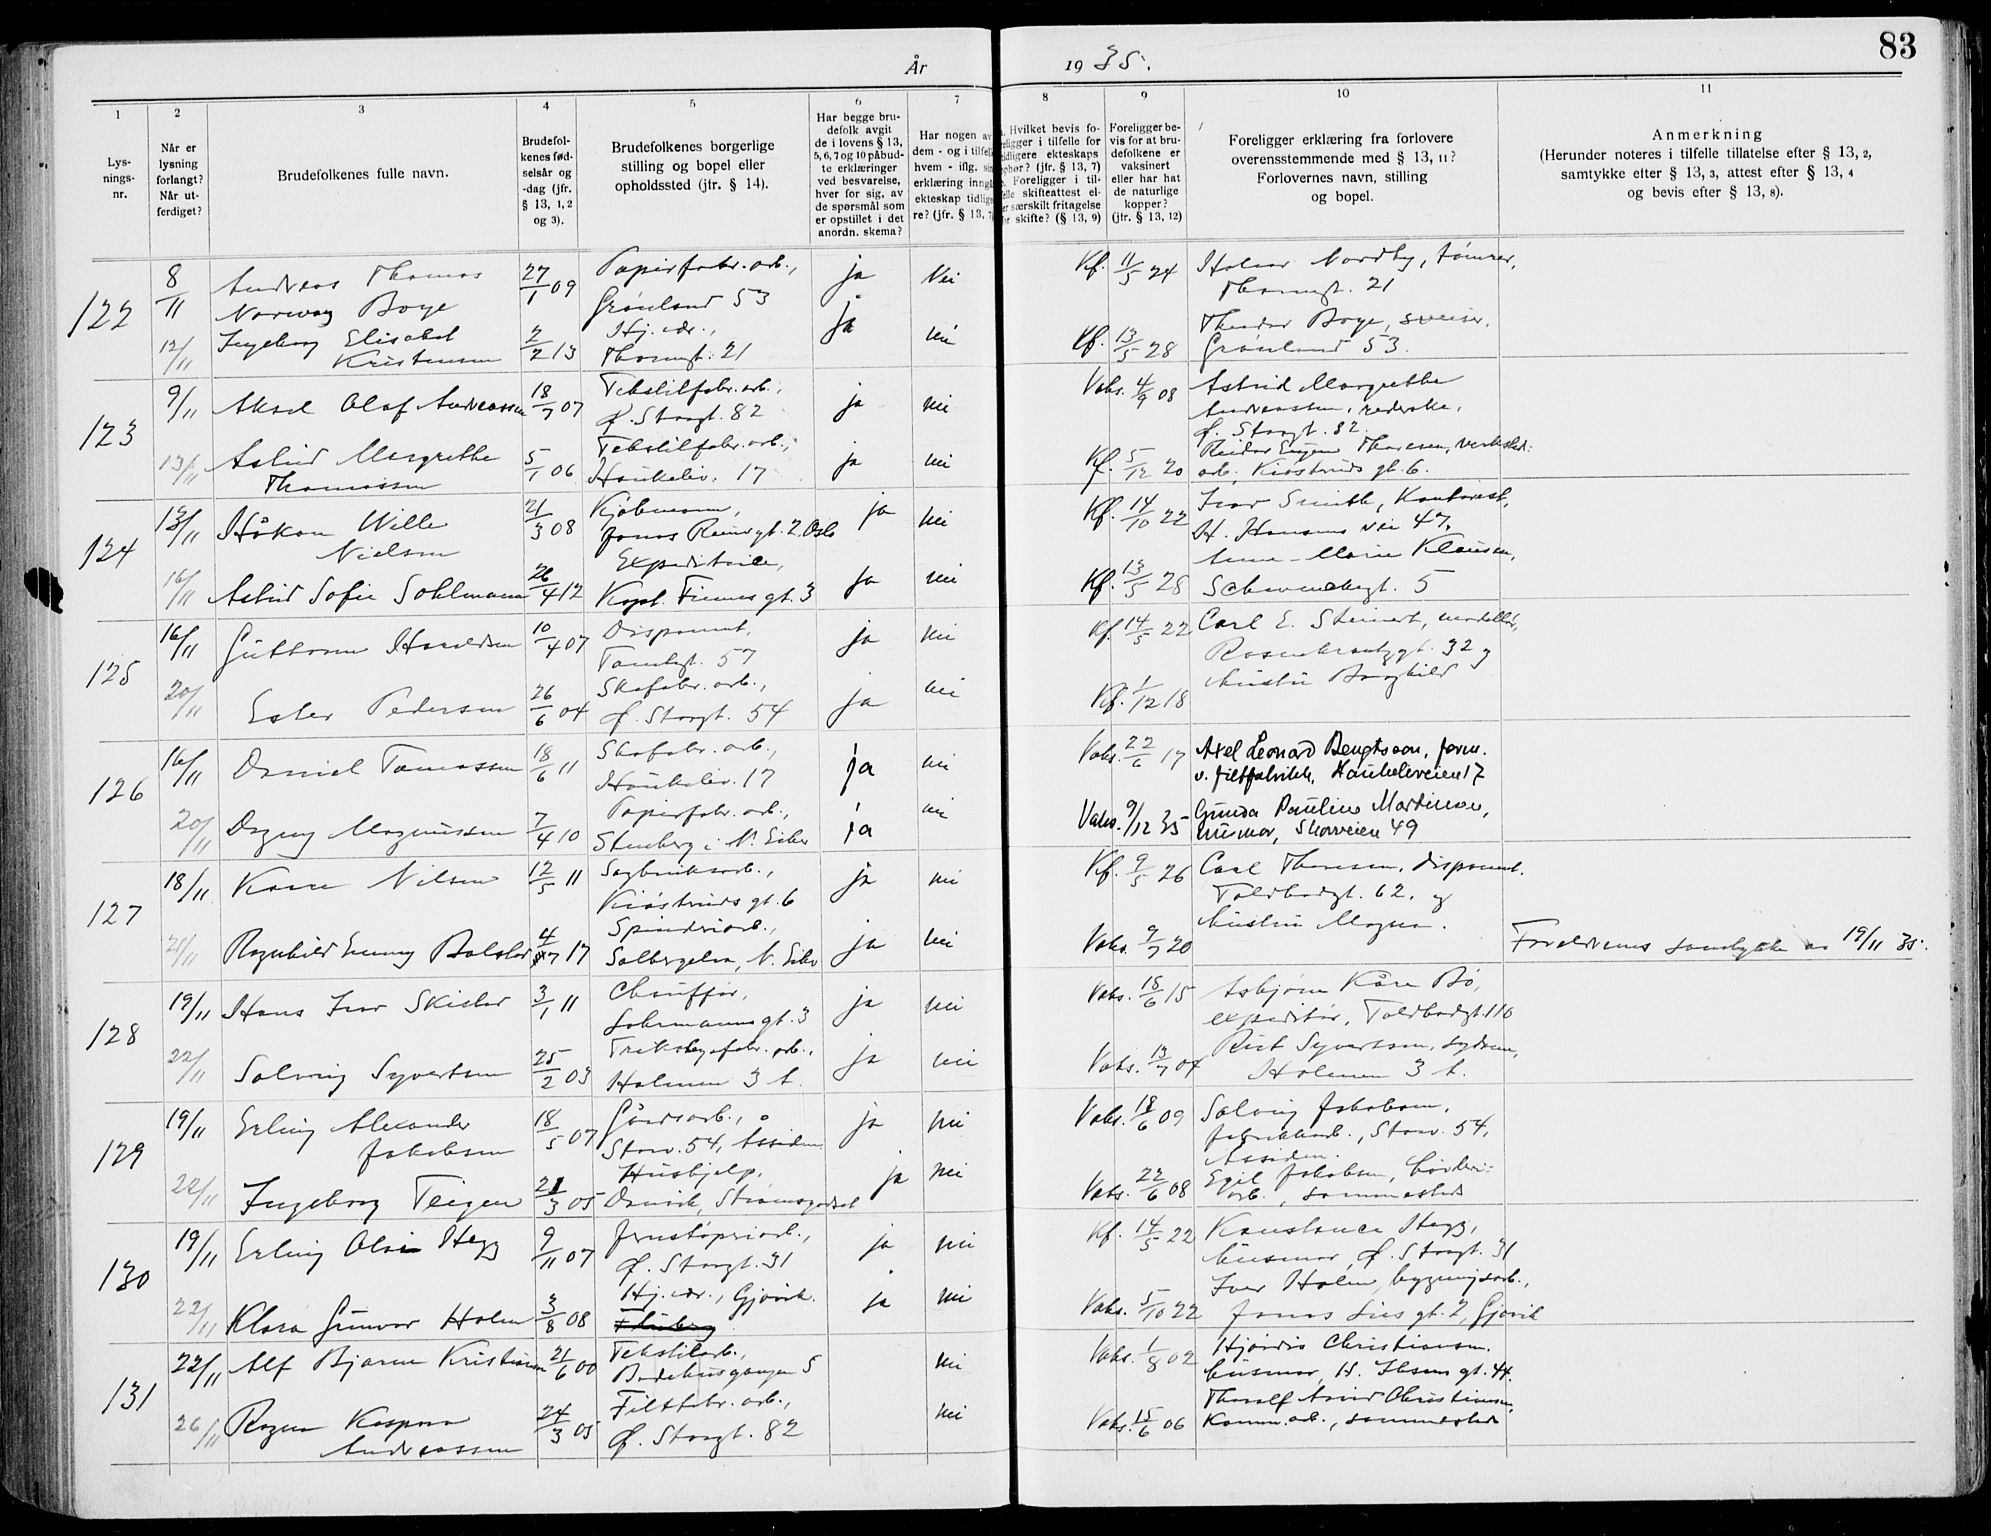 83
År 1935.
1 2 3 4 5 6 7 8 9 10 11
Lys-
nings-
nr.
Når er
lysning
forlangt?
Når ut-
ferdiget?
Brudefolkenes fulle navn.
Brudefol-
kenes fød-
selsår og
-dag (jfr.
§ 13, 1, 2
og 3).
Brudefolkenes borgerlige
stilling og bopel eller
opholdssted (jfr. § 14).
Har begge bru-
defolk avgit
de i lovens § 13,
5, 6, 7 og 10 påbud-
te erklæringer
ved besvarelse,
hver for sig, av
de spørsmål som
er opstillet i det
anordn. skema?
Har nogen av
dem - og i tilfelle
hvem - iflg.
erklæring inngå
ekteskap tidlige
re? (jfr. § 13, 7)
Hvilket bevis fo-
religger i tilfelle for
tidligere ekteskaps
ophør? (jfr. § 13, 7)
Foreligger i til-
felle skifteattest el-
er særskilt fritagelse
for skifte? (§ 13, 9)
Foreligger be-
vis for at bru-
defolkene er
vaksinert
eller har hat
de naturlige
kopper?
(jfr. § 13, 12)
Foreligger erklæring fra forlovere
overensstemmende med § 13, 11?
Forlovernes navn, stilling
og bopel.
Anmerkning
(Herunder noteres i tilfelle tillatelse efter § 13, 2,
samtykke efter § 13, 3, attest efter § 13, 4
og bevis efter § 13, 8).
122 8/11 Andreas Thomas 27/1 09 Papirfabr.arb., ja Nei Kf. 11/5 24 Halvor Nordby, tømrer,
Norway Boye Grønland 53 Thomsgt. 21
12/11 Ingeborg Elisabet 2/2 13 Hj. vær., ja nei Kf. 13/5 28 Theodor Boye, sveiser,
Kristensen Thomsgt. 21 Grønland 53.
123 9/11 Aksel Olaf Andreassen 18/7 07 Tekstilfabr.arb., ja nei Vaks. 4/9 08 Astrid Margrethe
Ø. Storgt. 82 Andreassen,
Ø. Storgt. 82.
13/11 Astrid Margrethe 5/1 06 Tekstilfabr.arb., ja nei Kf. 5/12 20 Reidar Eugen Thoresen, verksted-
Thomassen Haukeliv. 17 arb., Kiøsterudsgt. 6.
124 13/11 Håkon Wille 21/3 08 Kjøbmann, ja nei Kf. 14/10 22 Ivar Smith, Kontorist,
Nielsen Jonas Reinsgt. 2, Oslo H. Hansens vei 47,
16/11 Astrid Sofie Sohlmann 26/4 12 Expeditrise, ja nei Kf. 13/5 28 Anna-Marie Klausen,
Kapt. Finnesgt. 3 Schwencksgt. 5
125 16/11 Guttorm Haraldsen 10/4 07 Disponent, ja nei Kf. 14/5 22 Carl E. Steinert, modellør,
Tomtegt. 57 Rosenkrantzgt. 32 og
20/11 Ester Pedersen 26/6 04 Skofabr.arb., ja nei Kf. 1/12 18 hustru Borghild
Ø. Storgt. 54
126 16/11 Daniel Tomassen 18/6 11 Skofabr.arb., ja nei Vaks. 22/6 17 Axel Leonard Bengtsson, form.
Haukeliv. 17 v. filtfabrikk, Haukeliveien 17
20/11 Dagny Magnussen 7/4 10 Papirfabr.arb., ja nei Vaks. 9/12 35 Gunda Pauline Martinsen,
Stenberg i N. Eiker husmor, Skovveien 49
127 18/11 Kåre Nilsen 12/5 11 Sagbruksarb., ja nei Kf. 9/5 26 Carl Thoresen, disponent,
Kiøsterudsgt. 6 Toldbodgt. 62, og
21/11 Ragnhild Emmy Bolstad 4/7 17 Spinneriarb., ja nei Vaks. 9/7 20 hustru Magna. Foreldrenes samtykke av 19/11 35.
Solbergelva, N. Eiker
128 19/11 Hans Ivar Skistad 3/1 11 Chauffør, ja nei Vaks. 18/6 15 Asbjørn Kåre Bø,
Lohrmannsgt. 3 expeditør, Toldbodgt. 110
22/11 Solveig Syvertsen 25/2 03 Trikotagefabr.arb., ja nei Vaks. 13/7 04 Rut Syvertsen, sydame,
Holmen 3 b. Holmen 3 b.
129 19/11 Erling Alexander 18/5 07 Gårdsarb., ja nei Vaks. 18/6 09 Solveig Jakobsen,
Jakobsen Storv. 54, Åssiden fabrikkarb., Storv. 54,
Åssiden.
22/11 Ingeborg Teigen 21/3 05 Hushjelp, ja nei Vaks. 22/6 08 Egil Jakobsen,
Danvik, Strømsgodset arb., sammesteds
130 19/11 Erling Olai Hegg 9/11 07 Jernstøperiarb., ja nei Kf. 14/5 22 Konstance Hegg,
Ø. Storgt. 31 husmor, Ø. Storgt. 31
22/11 Klara Gunvor Holen 3/8 08 Hj. vær., Gjøvik. ja nei Vaks. 5/10 22 Iver Holen, bygningsarb.,
Jonas Liesgt. 2, Gjøvik
131 22/11 Alf Bjarne Kristiansen 21/6 00 Tekstilarb., nei Vaks. 1/8 02 Hjørdis Christiansen,
Bedehusgangen 5 husmor, H. Ibsens gt. 44.
26/11 Ragna Kaspara 24/3 05 Filtfabr.arb., nei Vaks. 15/6 06 Thoralf Arvid Christiansen,
Andreassen Ø. Storgt. 82 Komm.arb., sammesteds